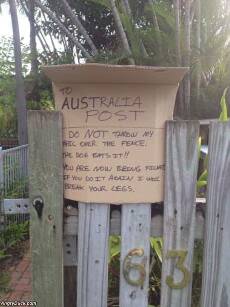 TO
AUSTRALIA
POST
DO NOT THROW MY
MAIL OVER THE FENCE.
THE DOG EATS IT!!
YOU ARE NOW BEING FILMED
IF YOU DO IT AGAIN I WILL
BREAK YOUR LEGS.
63